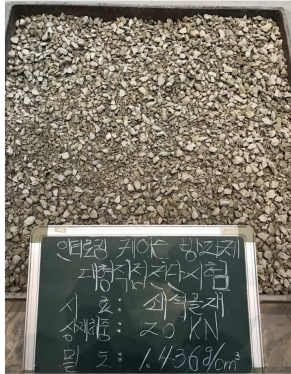 인터로킹 케이슨 항적제
대형직접전단시험
시 료: 쇄석골재
상재하중: 20 KN
밀 도: 1.436g/cm³